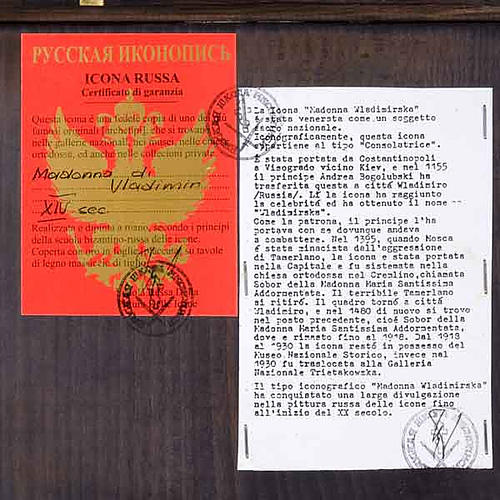 РУССКАЯ ИКОНОПИСЬ
ICONA RUSSA
Certificato di garanzia
Questa icona è una fedele copia di uno dei più
famosi originali [archetipi], che si trovano
nelle gallerie nazionali, nei musei, nelle chiese
ortodosse, ed anche nelle collezioni private
Madonna di
Vladimin
XIV sec
Realizzata e dipinta a mano, secondo i principi
della scuola bizantino-russa delle icone.
Coperta con
di legno massiccio di tiglio
La Icona "Madonna Wladimirska"
è stata venersta come un soggetto
sacro nazionale.
Iconograficamente, questa icona
appartiene al tipo "Consolatrice".
È stata portata da Constantinopoli
a Visogrado vicino Kiev, e nel 1155
il principe Andrea Bogolubski ha
trasferita questa a cittá Wladimiro
/Russia/. Lí la icona ha raggiunto
la celebritá ed ha ottenuto il nome --
"Wladimirska".
Come la patrona, il principe l'ha
portava con se dovunque andava
a combattere. Nel 1395, quando Mosca
é stata minaciata dall'aggressione
di Tamerlano, la icona e stata portata
nella Capitale e fu sistemata nella
chiesa ortodossa nel Cremlino,chiamata
Sobor della Madonna Maria Santissima
Addormentata. Il terribile Tamerlano
si ritiró. Il quadro tornó a cittá
Wladimiro, e nel 1480 di nuovo si trovo
nel posto precedente, cioé Sobor della
Madonna Maria Santissima Addormentata,
dove e rimasto fino al 1918. Dal 1918
al 1930 la icona restó in possesso del
Museo Nazionale Storico, invece nel
1930 fu traslocata alla Galleria
Nazionale Trietakowska.
Il tipo iconografico "Madonna Wladimirska"
ha conquistato una larga divulgazione
nella pittura russa delle icone fino
all'inizio del XX secolo.